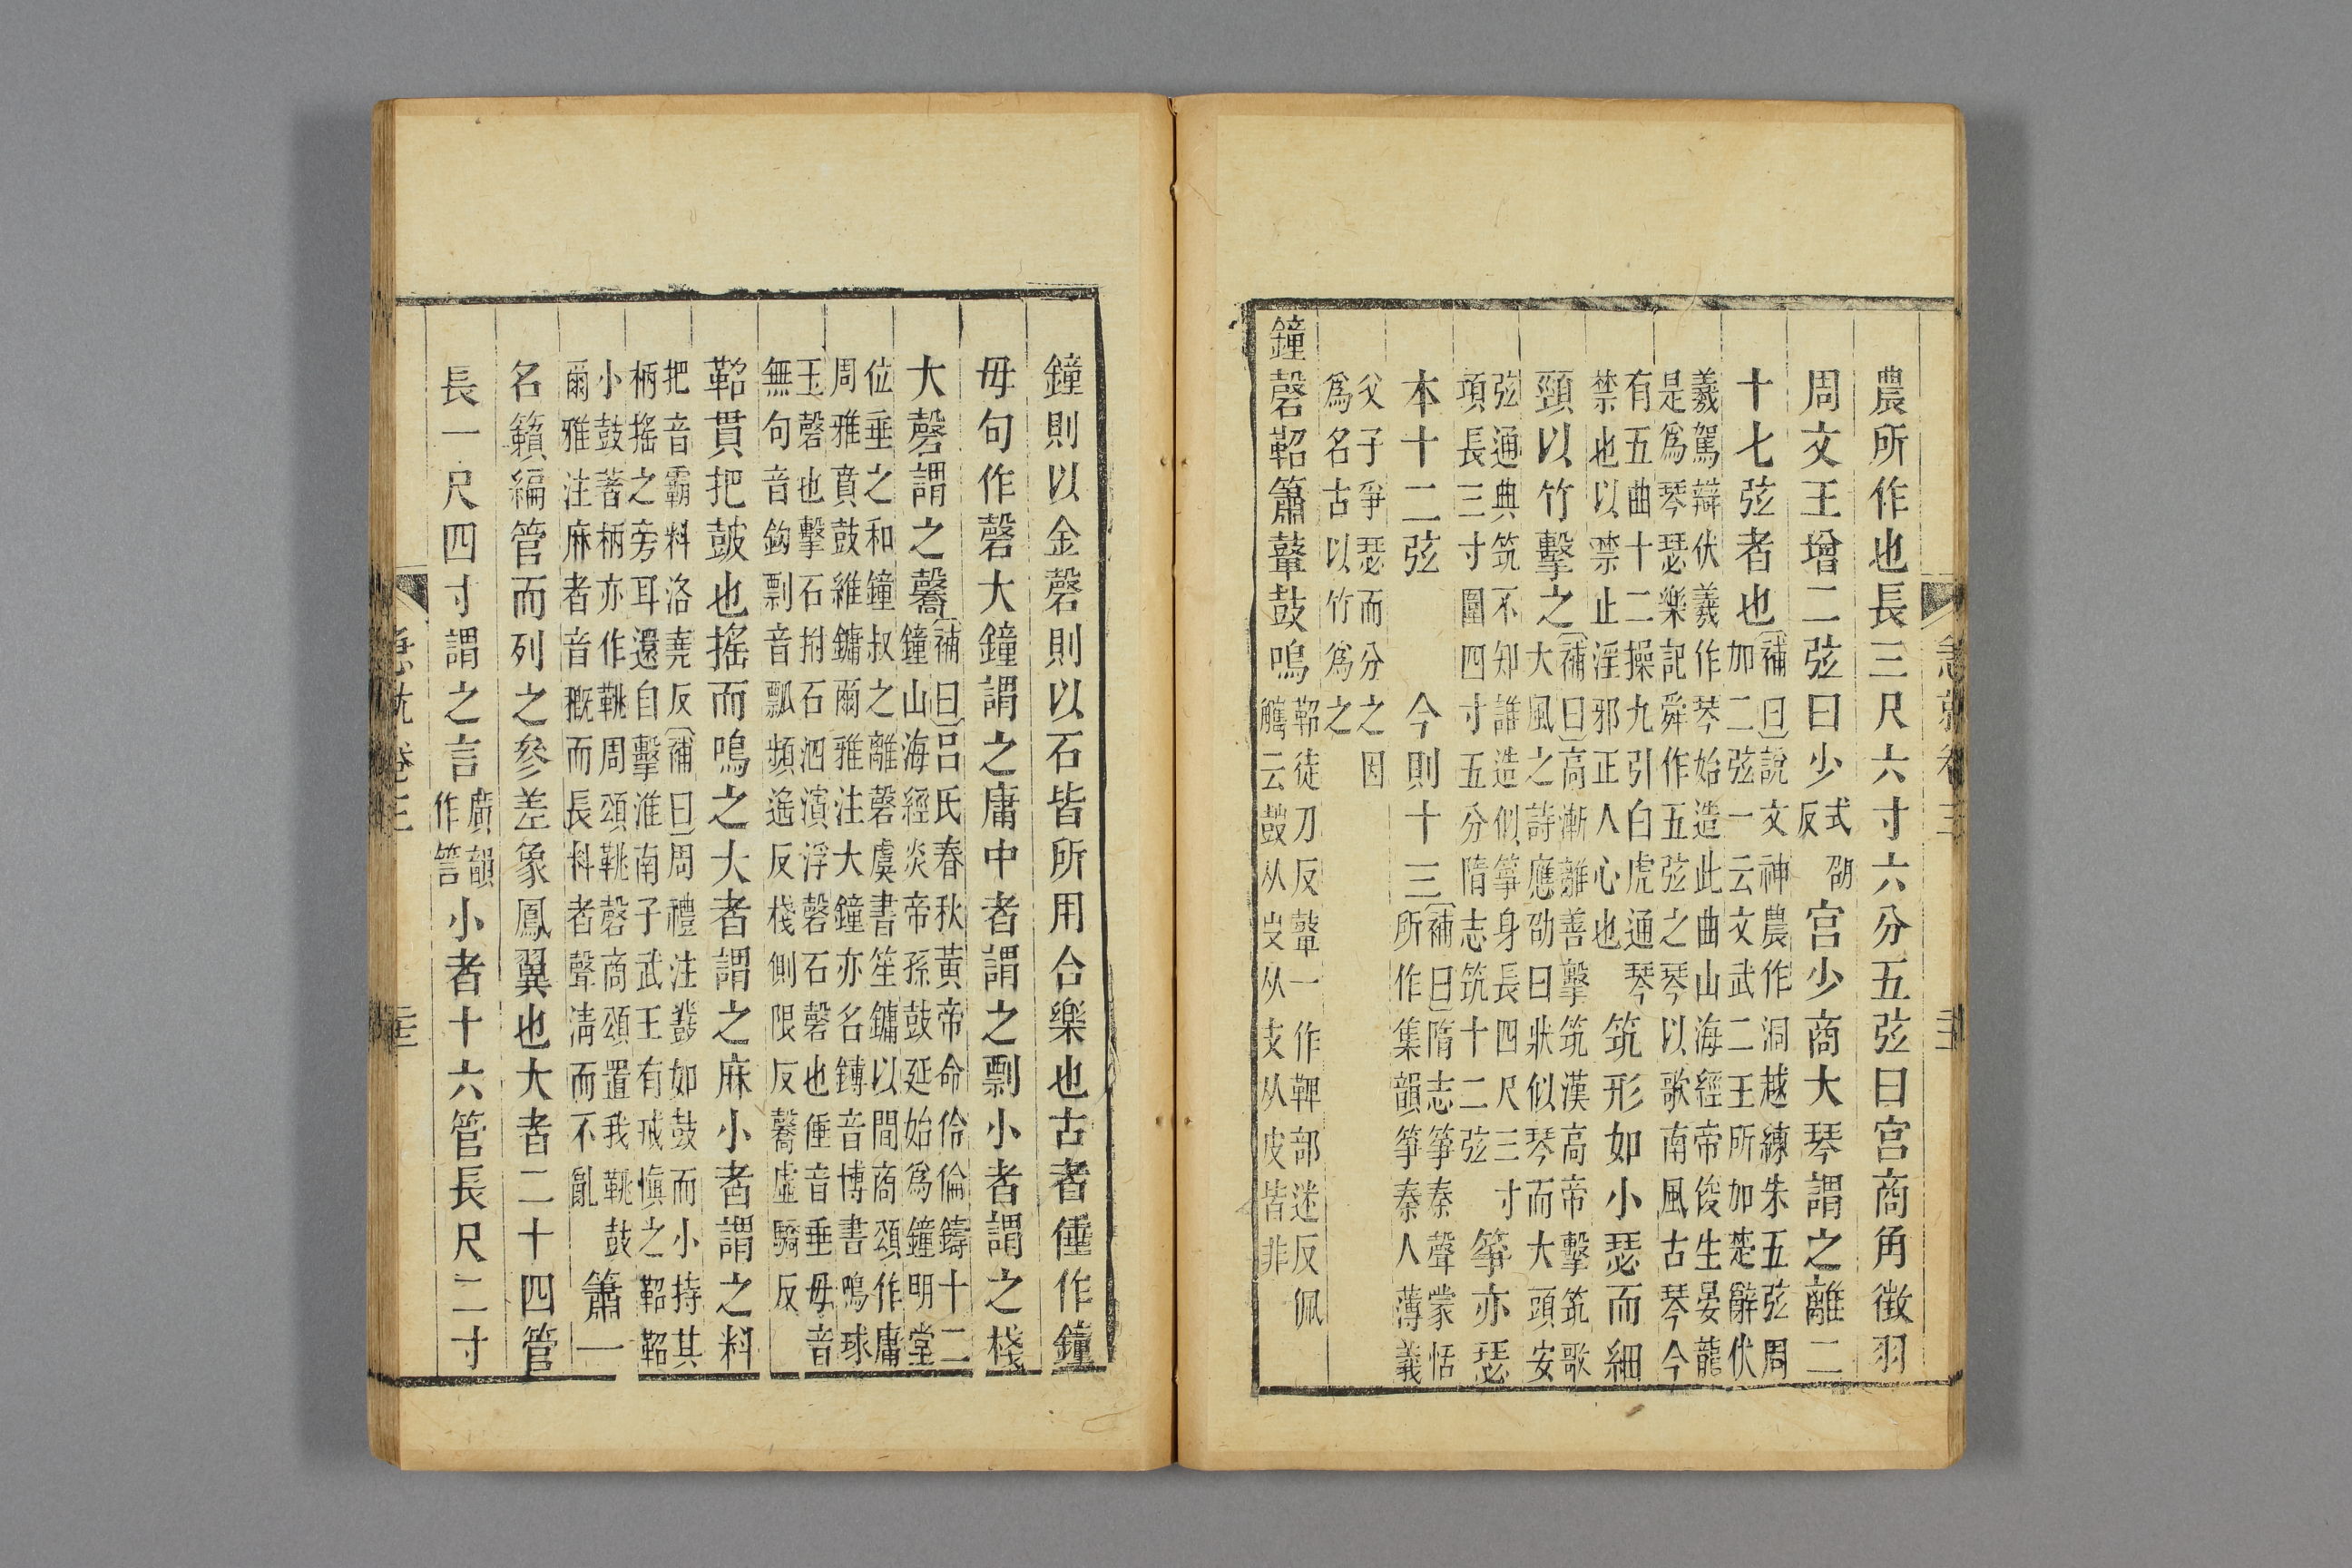 農所作也長三尺六寸六分五弦曰宫商角徵羽
周文王增二弦曰少式邵反宫少商大琴謂之離二
十七弦者也補曰說文神農作洞越練朱五弦周
加二弦一云文武二王所加楚辭伏
羲駕辯伏羲作琴始造此曲山海經帝俊生晏龍
是爲琴瑟樂記舜作五弦之琴以歌南風古琴今
有五曲十二操九引白虎通琴
禁也以禁止淫邪正人心也筑形如小瑟而細
頸以竹擊之補曰高漸離善擊筑漢高帝擊筑歌
大風之詩應劭曰狀似琴而大頭安
弦通典筑不知誰造似箏身長四尺三寸
項長三寸圍四寸五分隋志筑十二弦箏亦瑟
本十二弦今則十三補曰隋志箏秦聲蒙恬
所作集韻箏秦人薄義
父子爭瑟而分之因
爲名古以竹爲之
鐘磬鞀簫鼙鼓鳴鞀徒刀反鼙一作鞞部迷反佩
觿云鼓从攴从支从皮皆非
急就卷三
鐘則以金磬則以石皆所用合樂也古者倕作鐘
毋句作磬大鐘謂之庸中者謂之剽小者謂之棧
大磬謂之毊補曰呂氏春秋黃帝命伶倫鑄十二
鐘山海經炎帝孫鼓延始爲鐘明堂
位垂之和鐘叔之離磬虞書笙鏞以間商頌作庸
周雅賁鼓維鏞爾雅注大鐘亦名鏄音博書鳴球
玉磬也擊石拊石泗濱浮磬石磬也倕音垂毋音
無句音鉤剽音瓢頻遙反棧側限反毊虛驕反
鞀貫把鼓也搖而鳴之大者謂之麻小者謂之料
把音霸料洛堯反補曰周禮注鼗如鼓而小持其
柄搖之旁耳還自擊淮南子武王有戒愼之鞀鞀
小鼓著柄亦作鞉周頌鞉磬商頌置我鞉鼓
爾雅注麻者音概而長料者聲淸而不亂簫一
名籟編管而列之參差象鳳翼也大者二十四管
長一尺四寸謂之言廣韻作䇾小者十六管長尺二寸